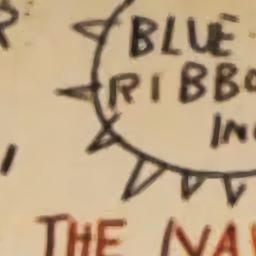 BLUE
RIBBO
IN
THE